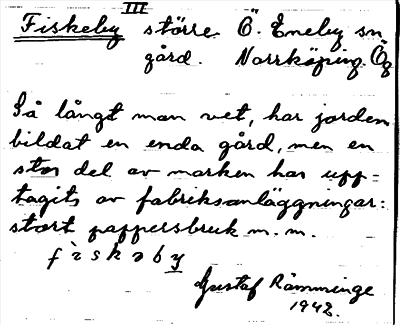 III
Fiskeby större Ö. Eneby sn
gård. Norrköping. Ög
Så långt man vet, har jorden
bildat en enda gård, men en
stor del av marken har upp=
tagits av fabriksanläggningar:
stort pappersbruk m. m.
fìskəby
Gustaf Rämminge
1942.